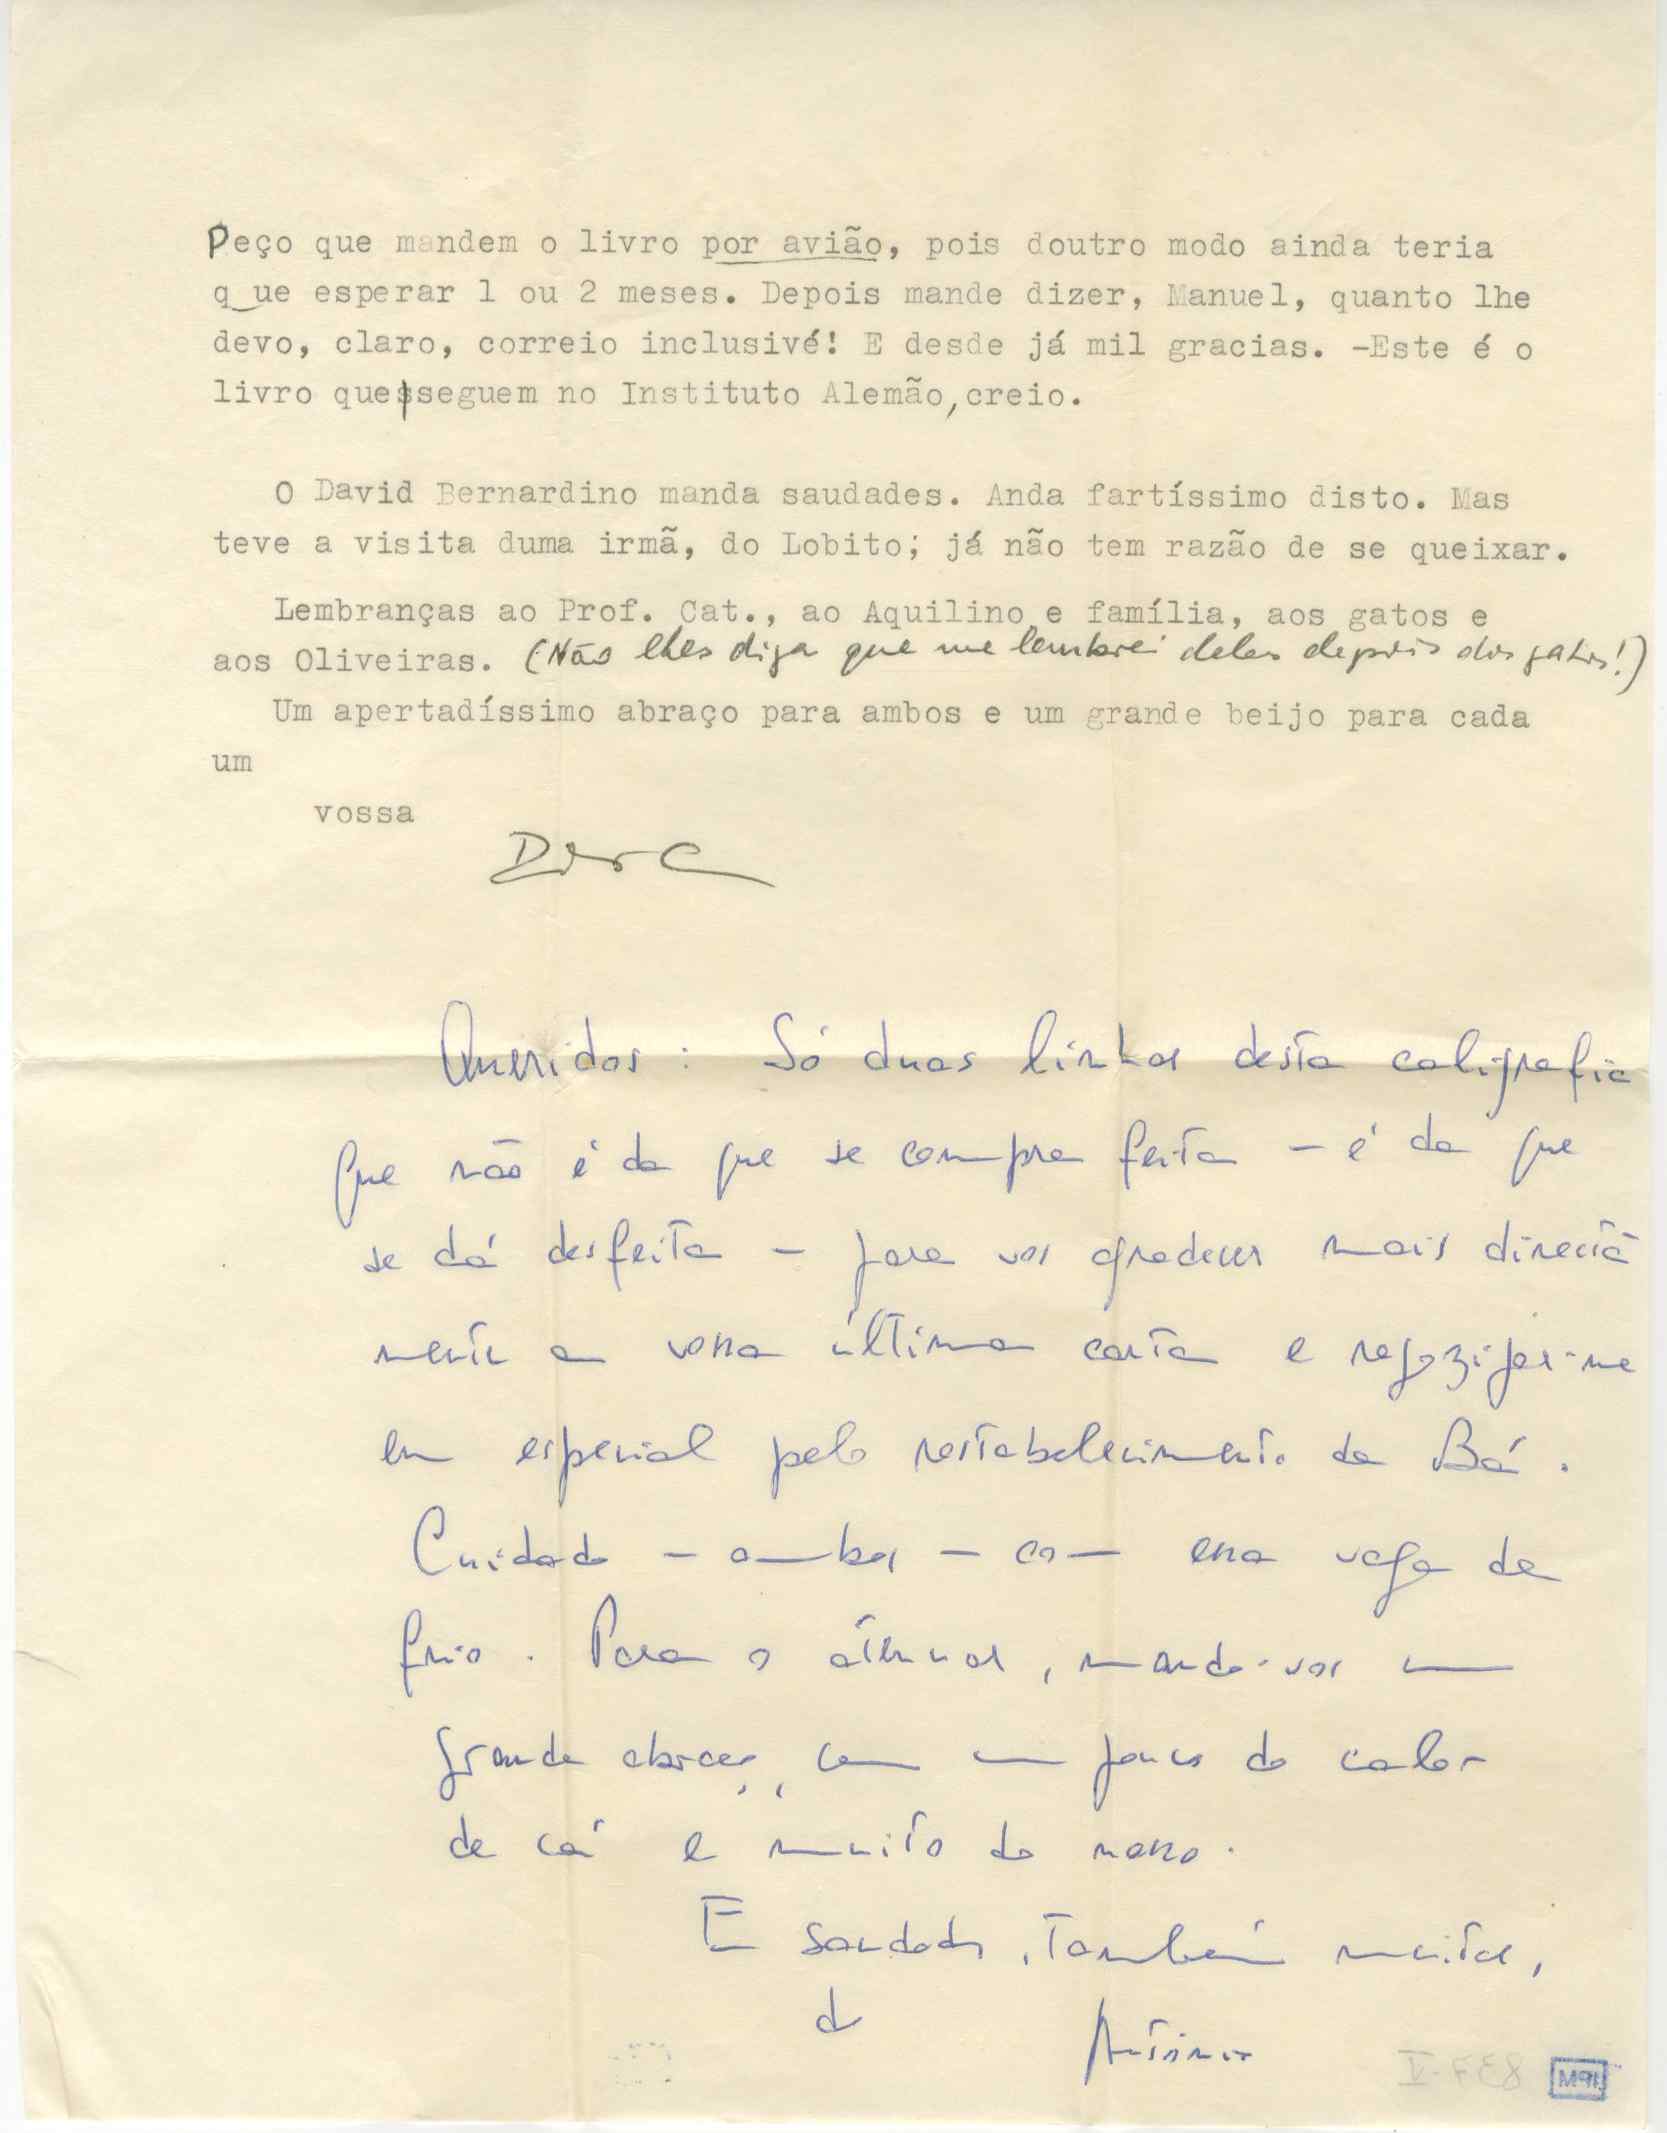 Peço que mandem o livro por avião, pois doutro modo ainda teria
que esperar 1 ou 2 meses. Depois mande dizer, Manuel, quanto lhe
devo, claro, correio inclusivé! E desde já mil gracias. -Este é o
livro que seguem no Instituto Alemão, creio.
O David Bernardino manda saudades. Anda fartíssimo disto. Mas
teve a visita duma irmã, do Lobito; já não tem razão de se queixar.
Lembranças ao Prof. Cat., ao Aquilino e família, aos gatos e
aos Oliveiras. (Não lhes diga que me lembrei deles depois dos gatos!)
Um apertadíssimo abraço para ambos e um grande beijo para cada
um
vossa
Queridos: Só duas linhas desta caligrafia
que não é da que se compra feita – é da que
se dá desfeita – para vos agradecer mais directa
mente a vossa última carta e regozijar-me
em especial pelo restabelecimento da Bá.
Cuidado – ambos – com essa vaga de
frio. Para a atenuar, mando-vos um
grande abraço, com um pouco do calor
de cá e muito do nosso.
E saudades, também muitas,
do
António
V-FE8